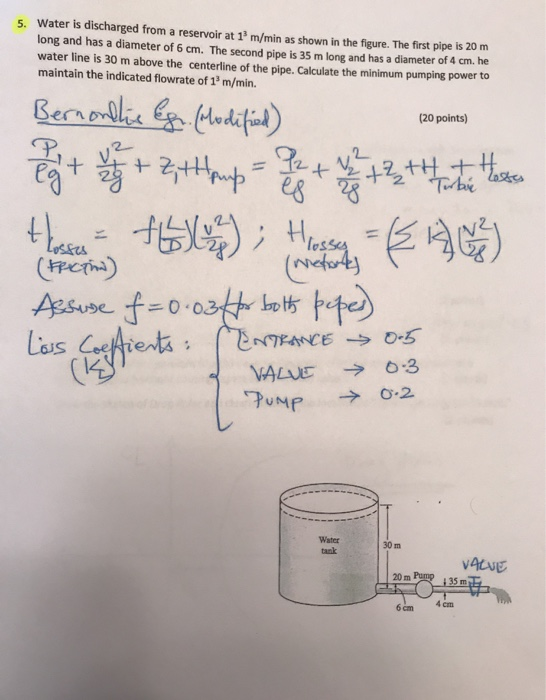 5. Water is discharged from a reservoir at 1³ m/min as shown in the figure. The first pipe is 20 m
long and has a diameter of 6 cm. The second pipe is 35 m long and has a diameter of 4 cm. he
water line is 30 m above the centerline of the pipe. Calculate the minimum pumping power to
maintain the indicated flowrate of 1³ m/min.
(20 points)
Bernoullis Eqn. (Modified)
P₁/ρg + V₁²/2g + Z₁ + H pump = P₂/ρg + V₂²/2g + Z₂ + H Turbine + H Losses
H Losses (FRICTION) = f(L/D)(V²/2g) ; H losses = (Σ KL)(V²/2g)
Assume f = 0.03 (for both pipes)
Loss Coefficients : (KL) ENTRANCE → 0.5
VALVE → 0.3
PUMP → 0.2
Water
tank
30 m
VALVE
20 m Pump
35 m
6 cm
4 cm